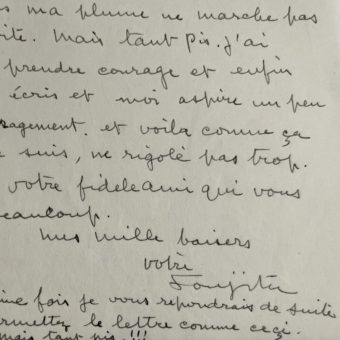 ma plume ne marche pas
ite. Mais tant pis. j'ai
prendre courage et enfin
écris et moi aspire un peu
ragement. et voila comme ça
suis, ne rigolé pas trop.
votre fidele ami qui vous
eaucoup.
mes mille baisers
votre
Foujita
me fois je vous repondrais de suite
ermettez le lettre comme ceçi.
mais tant pis !!!